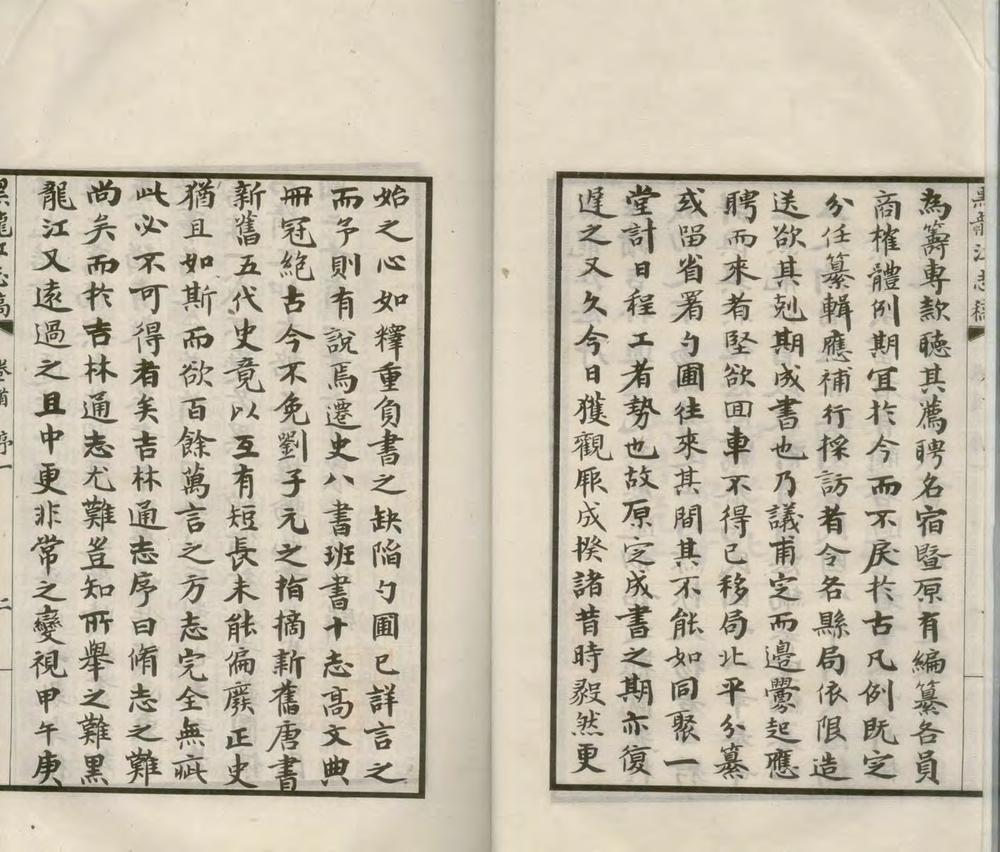 黑龍江志稿
為籌專款聽其薦聘名宿暨原有編纂各員
商榷體例期宜於今而不戾於古凡例既定
分任纂輯應補行採訪者令各縣局依限造
送欲其剋期成書也乃議甫定而邊釁起應
聘而來者堅欲回車不得已移局北平分纂
或留省署勺圃往來其間其不能如同聚一
堂計日程工者勢也故原定成書之期亦復
遲之又久今日獲觀厥成揆諸昔時毅然更
始之心如釋重負書之缺陷勺圃已詳言之
而予則有說焉遷史八書班書十志高文典
冊冠絕古今不免劉子元之指摘新舊唐書
新舊五代史竟以互有短長未能偏廢正史
猶且如斯而欲百餘萬言之方志完全無疵
此必不可得者矣吉林通志序曰脩志之難
尚矣而於吉林通志尤難豈知所舉之難黑
龍江又遠過之且中更非常之變視甲午庚
黑龍江志稿 卷首 序一 二